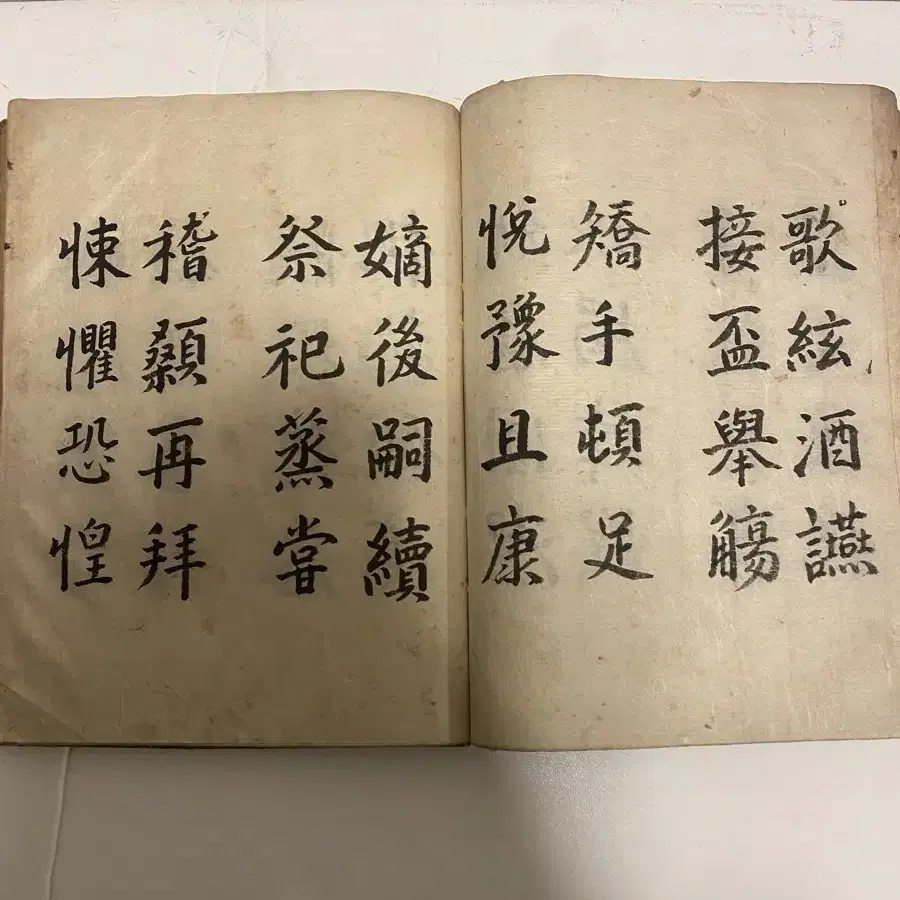 歌絃酒讌
接盃舉觴
矯手頓足
悅豫且康
嫡後嗣續
祭祀蒸嘗
稽顙再拜
悚懼恐惶